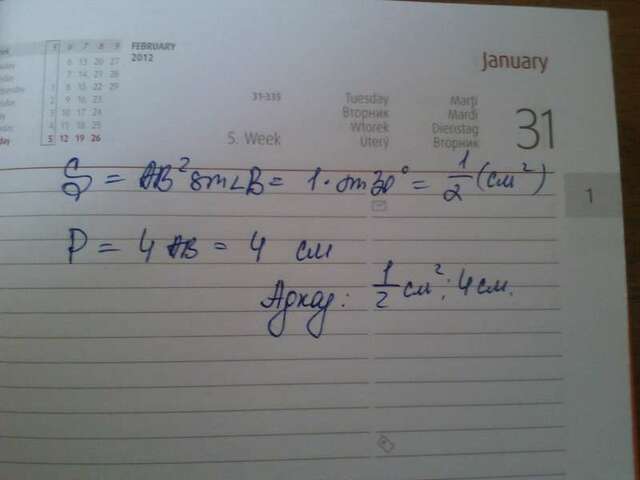 FEBRUARY
2012
5 6 7 8 9
6 13 20 27
7 14 21 28
1 8 15 22 29
2 9 16 23
3 10 17 24
4 11 18 25
5 12 19 26
January
31-335
Tuesday
Вторник
Wtorek
Úterý
Marţi
Mardi
Dienstag
Вторник
31
5. Week
1
S = AB² sin∠B = 1 · sin30° = 1/2 (см²)
P = 4 AB = 4 см
Адказ: 1/2 см²; 4 см.